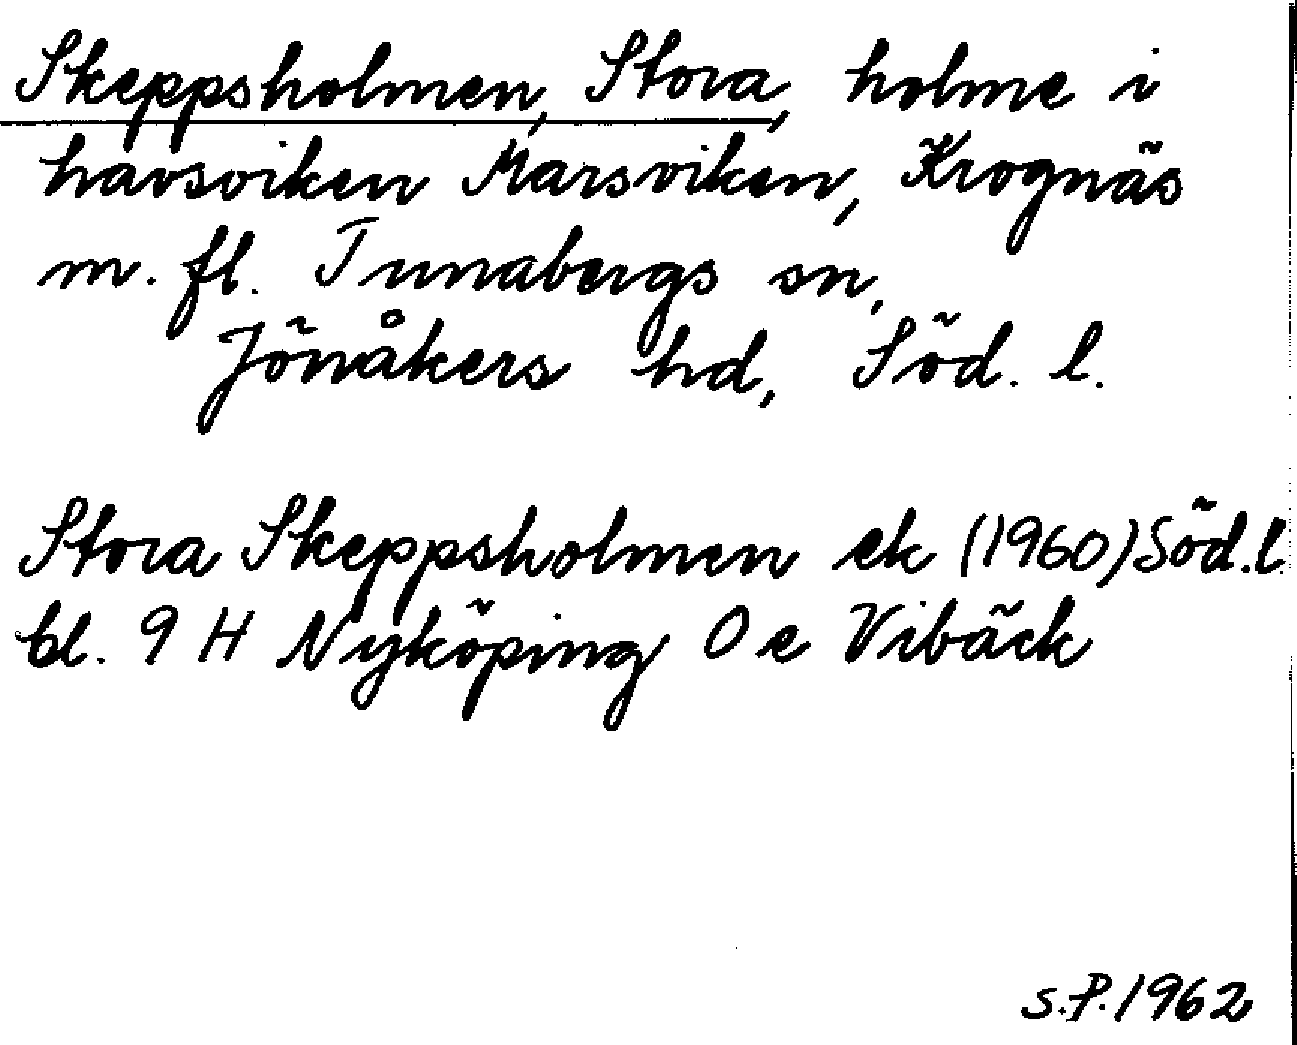 Skeppsholmen, Stora, holme i
havsviken Marsviken, Krognäs
m. fl. Tunabergs sn,
Jönåkers hd, Söd. l.
Stora Skeppsholmen ek (1960) Söd. l.
bl. 9 H Nyköping O e Vibäck
S.P. 1962